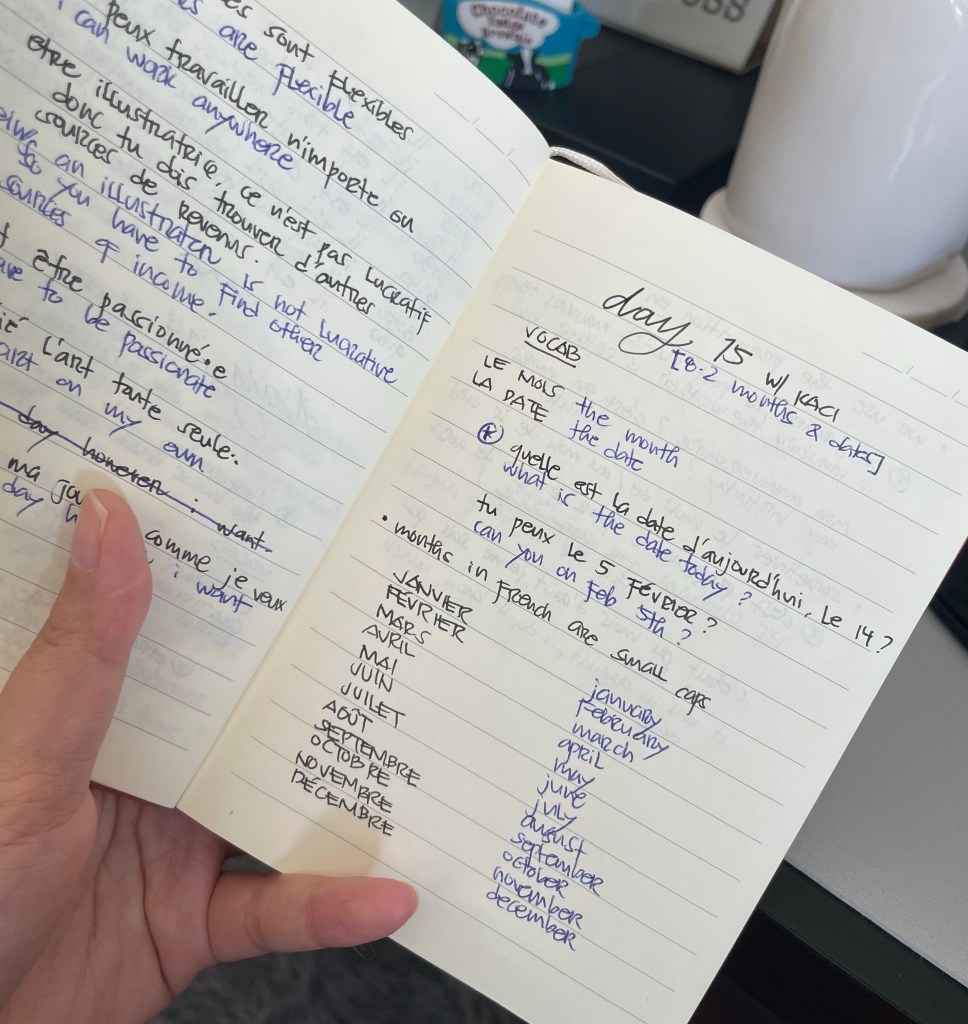 es sont flexibles
are flexible
peux travailler n'importe ou
i can work anywhere
etre illustratrice, ce n'est pas lucratif
donc tu dois trouver d'autres
sources de revenus.
an illustrator is not lucrative
so you have to find other
sources of income.
être passionné.e
to be passionate
L'art toute seule.
art on my own
day however i want.
ma jou comme je veux
day h i want
day 15 w/ KACI
[8.2 months & dates]
VOCAB
LE MOIS the month
LA DATE the date
* quelle est la date d'aujourd'hui, le 14?
what is the date today?
tu peux le 5 février?
can you on Feb 5th?
• months in French are small caps
JANVIER january
FÉVRIER February
MARS march
AVRIL april
MAI may
JUIN june
JUILET july
AOÛT august
SEPTEMBRE september
OCTOBRE october
NOVEMBRE november
DÉCEMBRE december
Chocolate
fudge
brownie